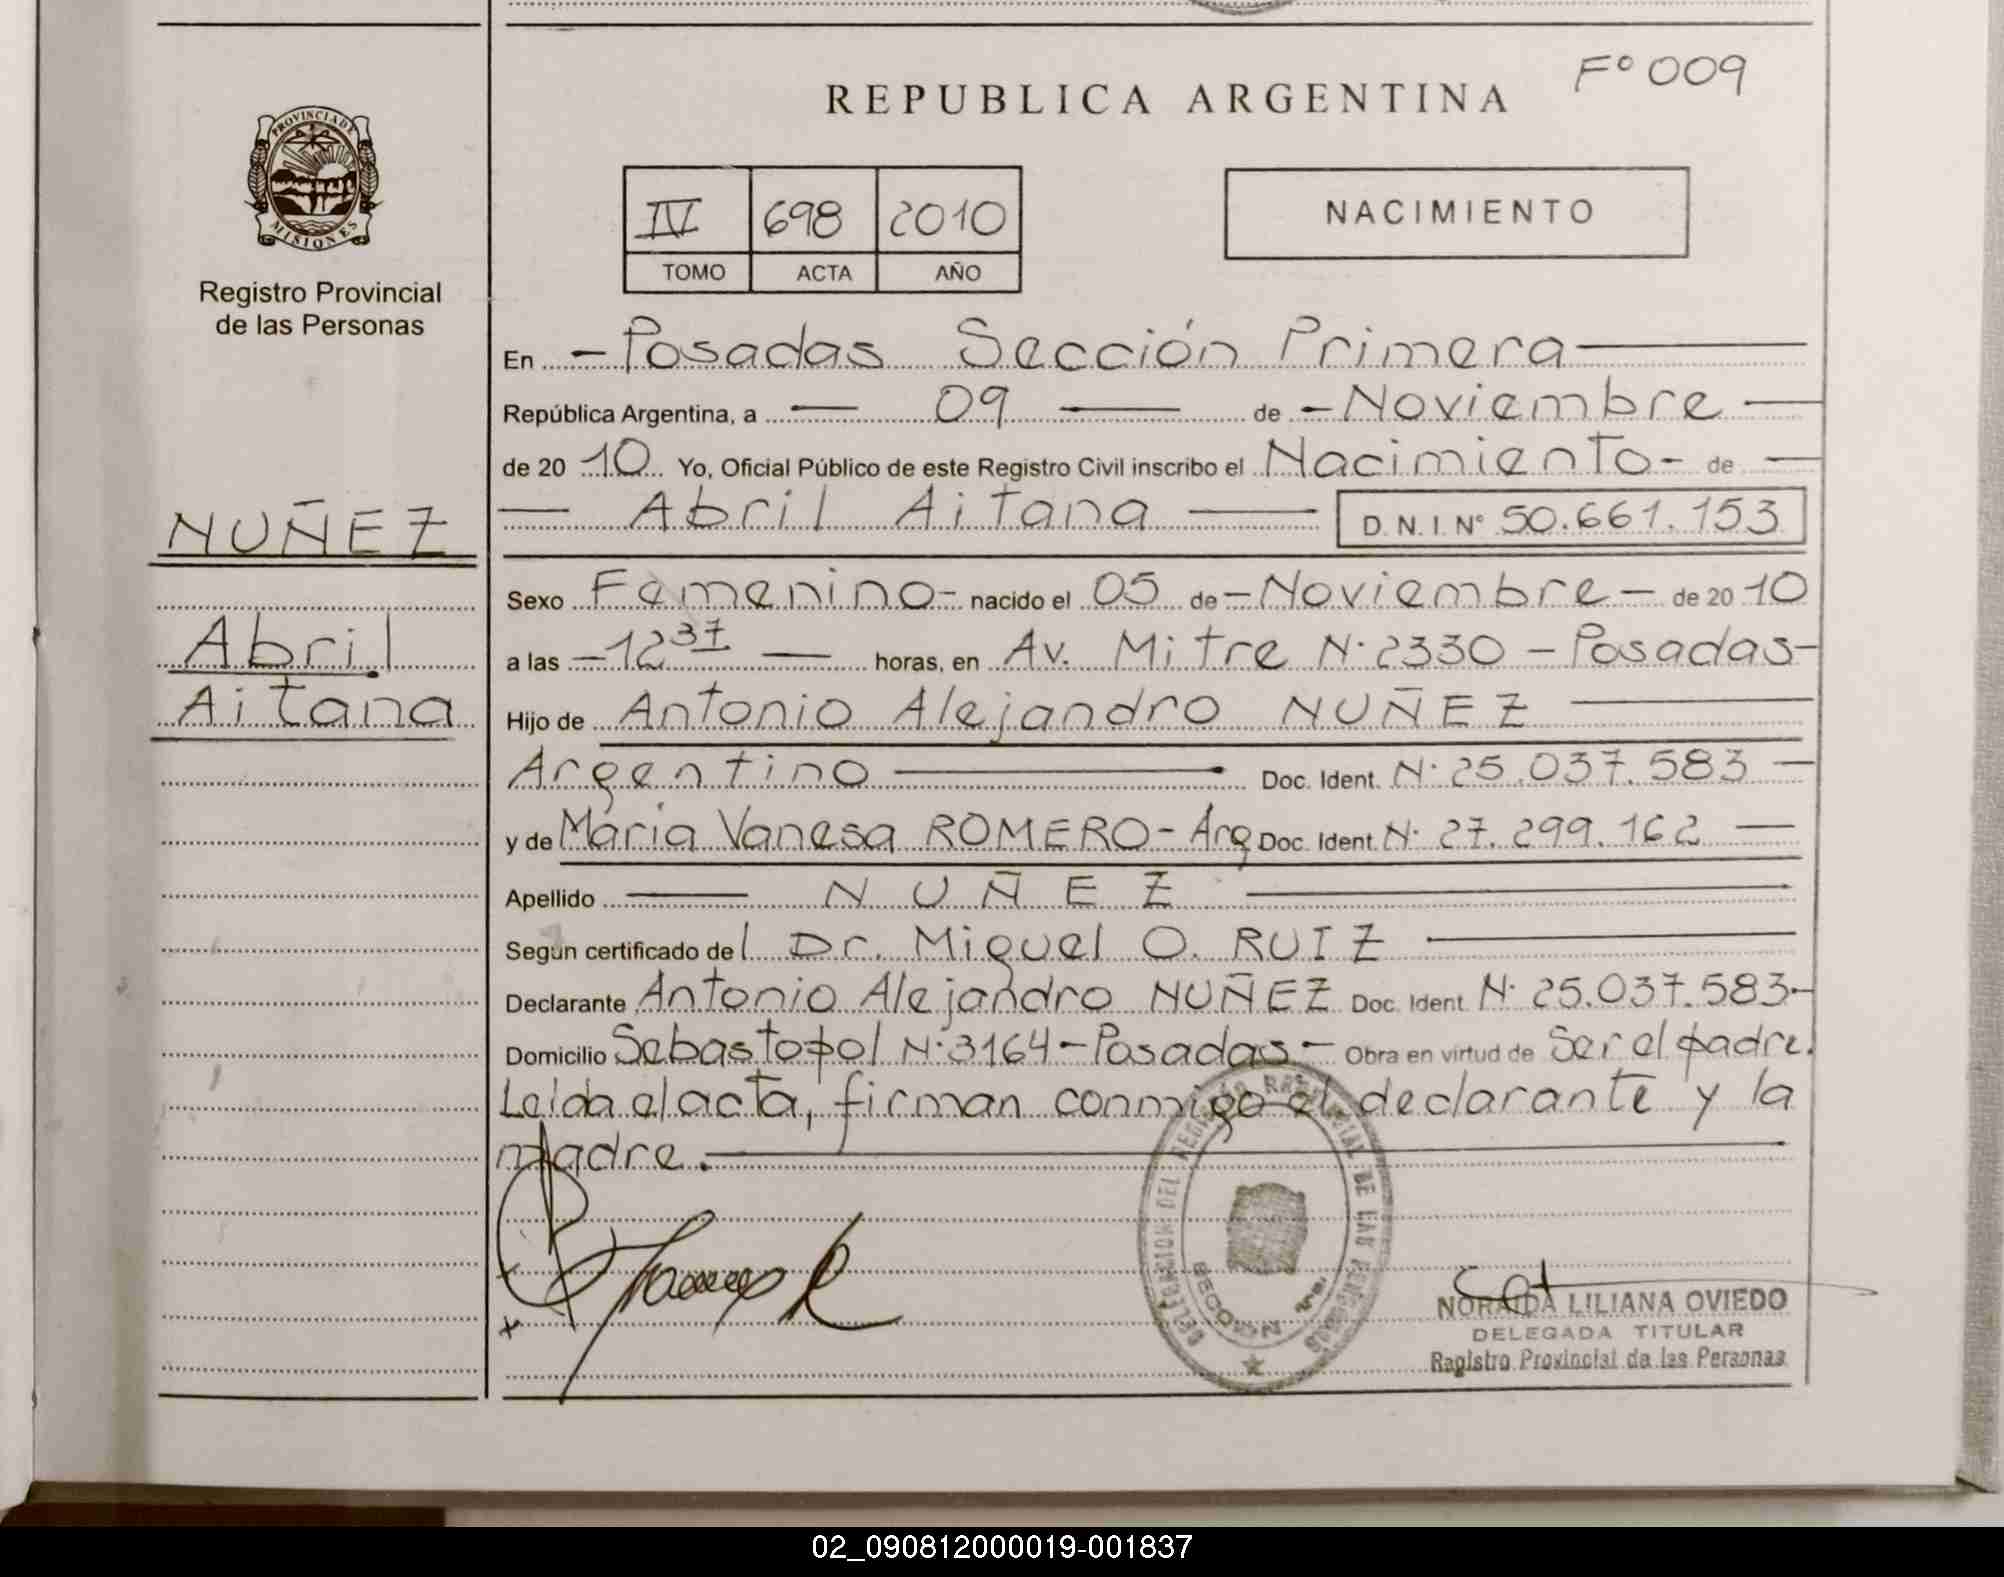 F° 009
REPUBLICA ARGENTINA
PROVINCIA DE
MISIONES
Registro Provincial
de las Personas
IV 698 2010
TOMO ACTA AÑO
NACIMIENTO
En - Posadas Sección Primera
República Argentina, a 09 de - Noviembre
de 20 10 Yo, Oficial Público de este Registro Civil inscribo el Nacimiento - de
Abril Aitana D.N.I. N° 50.661.153
NUÑEZ
Abril
Aitana
Sexo Femenino - nacido el 05 de - Noviembre - de 20 10
a las - 12 37 horas, en Av. Mitre N· 2330 - Posadas -
Hijo de Antonio Alejandro NUÑEZ
Argentino Doc. Ident. N· 25.037.583
y de Maria Vanesa ROMERO - Arg Doc. Ident. N· 27.299.162
Apellido NUÑEZ
Según certificado de l Dr. Miguel O. RUIZ
Declarante Antonio Alejandro NUÑEZ Doc. Ident. N· 25.037.583 -
Domicilio Sebastopol N· 3164 - Posadas - Obra en virtud de Ser el padre.
Leida el acta, firman conmigo el declarante y la
madre.
DELEGACION DEL REGISTRO PROVINCIAL DE LAS PERSONAS
SECCION 1ra.
NORAIDA LILIANA OVIEDO
DELEGADA TITULAR
Registro Provincial de las Personas
02_090812000019-001837